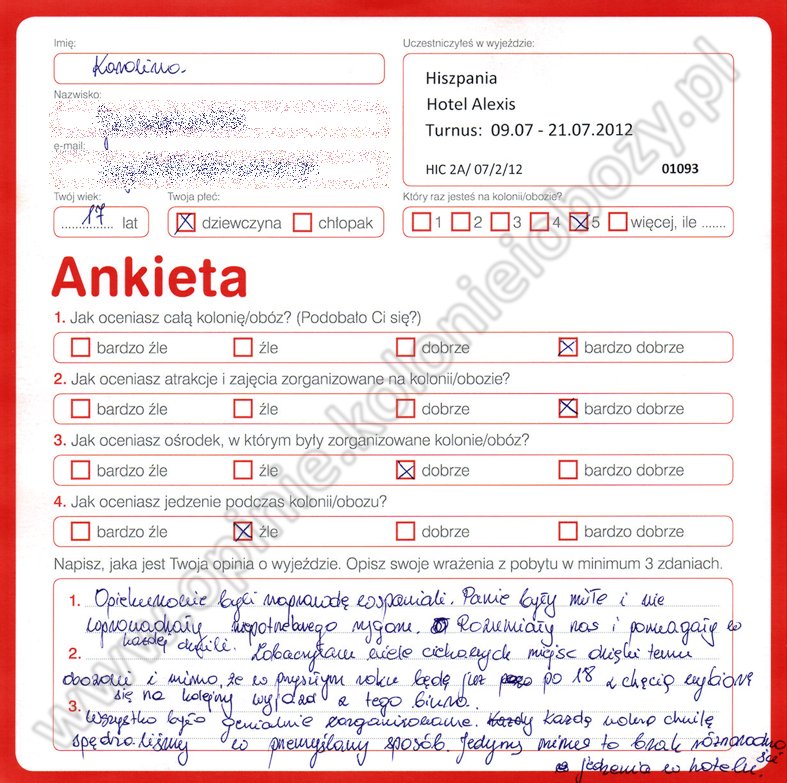 Imię:
Karolina.
Uczestniczyłeś w wyjeździe:
Hiszpania
Hotel Alexis
Turnus: 09.07 - 21.07.2012
HIC 2A/ 07/2/12 01093
Nazwisko:
e-mail:
Twój wiek: Twoja płeć: Który raz jesteś na kolonii/obozie?
17 lat dziewczyna chłopak 1 2 3 4 5 więcej, ile .......
Ankieta
1. Jak oceniasz całą kolonię/obóz? (Podobało Ci się?)
bardzo źle źle dobrze bardzo dobrze
2. Jak oceniasz atrakcje i zajęcia zorganizowane na kolonii/obozie?
bardzo źle źle dobrze bardzo dobrze
3. Jak oceniasz ośrodek, w którym były zorganizowane kolonie/obóz?
bardzo źle źle dobrze bardzo dobrze
4. Jak oceniasz jedzenie podczas kolonii/obozu?
bardzo źle źle dobrze bardzo dobrze
Napisz, jaka jest Twoja opinia o wyjeździe. Opisz swoje wrażenia z pobytu w minimum 3 zdaniach.
1. Opiekunowie byli naprawdę wspaniali. Panie były miłe i nie
wprowadzały niepotrzebnego rygoru. Rozumiały nas i pomagały w
każdej chwili.
2. Zobaczyłam wiele ciekawych miejsc dzięki temu
obozowi i mimo, że w przyszłym roku będę już po 18 z chęcią wybiorę
się na kolejny wyjazd z tego biura.
3. Wszystko było genialnie zorganizowane. Każdy każdą wolną chwilę
spędzaliśmy w przemyślany sposób. Jedyny minus to brak różnorodności
jedzenia w hotelu.
www.opinie.kolonieiobozy.pl